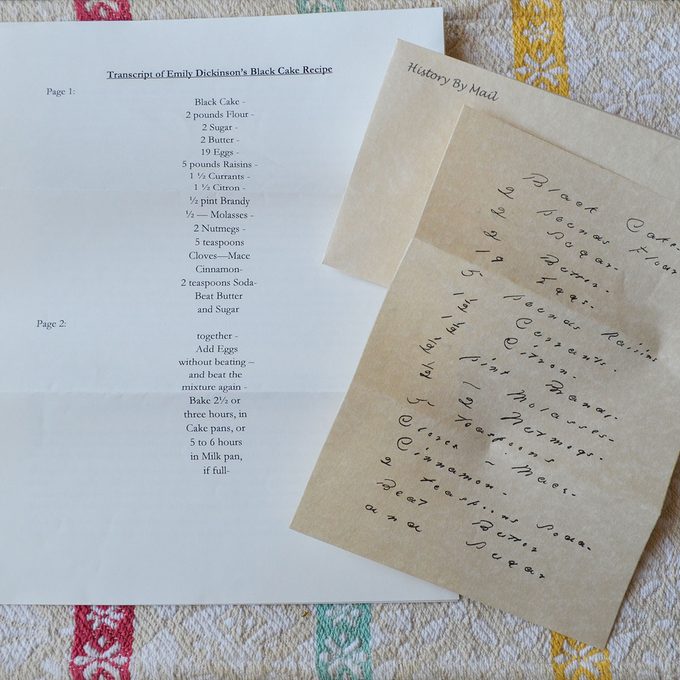 Transcript of Emily Dickinson's Black Cake Recipe
Page 1:
Black Cake -
2 pounds Flour -
2 Sugar -
2 Butter -
19 Eggs -
5 pounds Raisins -
1 ½ Currants -
1 ½ Citron -
½ pint Brandy
½ — Molasses -
2 Nutmegs -
5 teaspoons
Cloves—Mace
Cinnamon-
2 teaspoons Soda-
Beat Butter
and Sugar
Page 2:
together -
Add Eggs
without beating –
and beat the
mixture again -
Bake 2½ or
three hours, in
Cake pans, or
5 to 6 hours
in Milk pan,
if full-
History By Mail
Black Cake-
2 pounds Flour
2 Sugar-
2 Butter-
19 Eggs-
5 pounds Raisins
1½ Currants-
1½ Citron-
½ pint Brandy-
½ Molasses-
2 Nutmegs-
5 teaspoons
Cloves - Mace-
Cinnamon-
2 teaspoons Soda-
Beat Butter
and Sugar